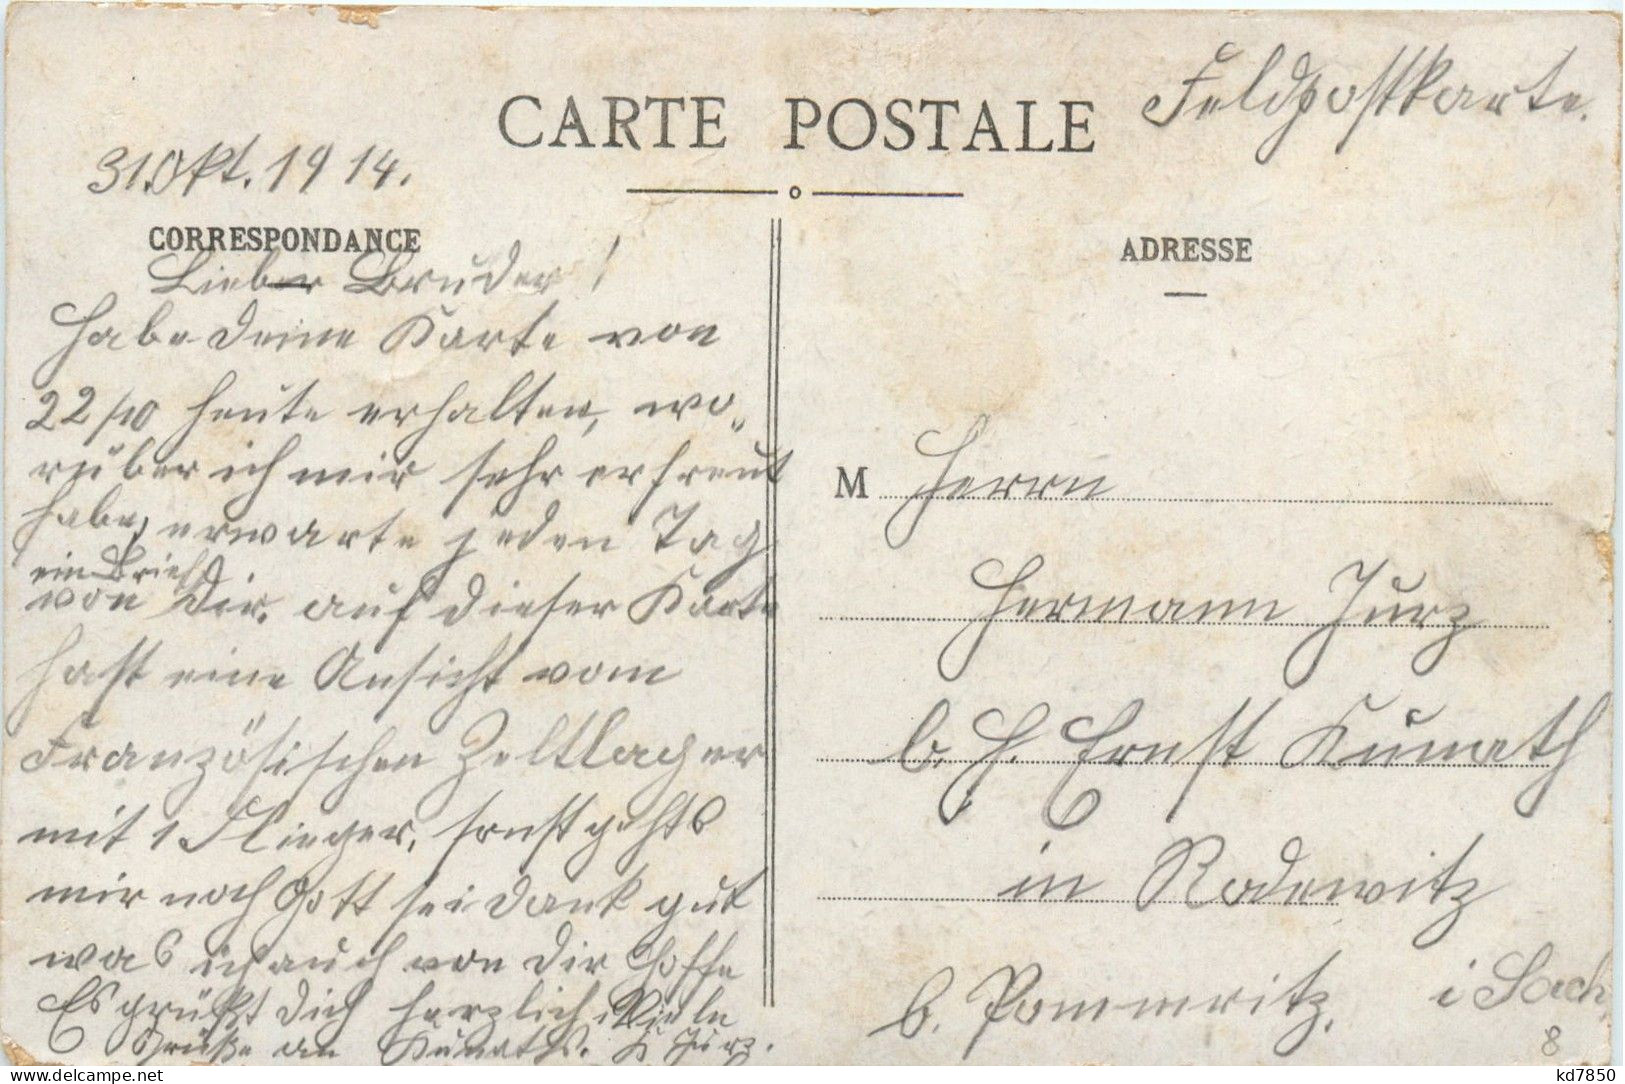 CARTE POSTALE
Feldpostkarte.
31. Okt. 1914.
CORRESPONDANCE
Lieber Bruder!
Habe deine Karte von
22/10 heute erhalten, wo„
rüber ich mir sehr erfreut
habe, erwarte jeden Tag
ein Brief
von Dir. auf dieser Karte
hast eine Ansicht vom
Französischen Zeltlager
mit 1 Flieger, sonst gehts
mir noch Gott sei dank gut
was ich auch von dir hoffe
Es grüßt dich herzlich Viele
Grüße an Kunaths. Jurz.
ADRESSE
M Herrn
Hermann Jurz
b. H. Ernst Kunath
in Rodewitz
b. Pommritz. i Sach.
8
kd7850